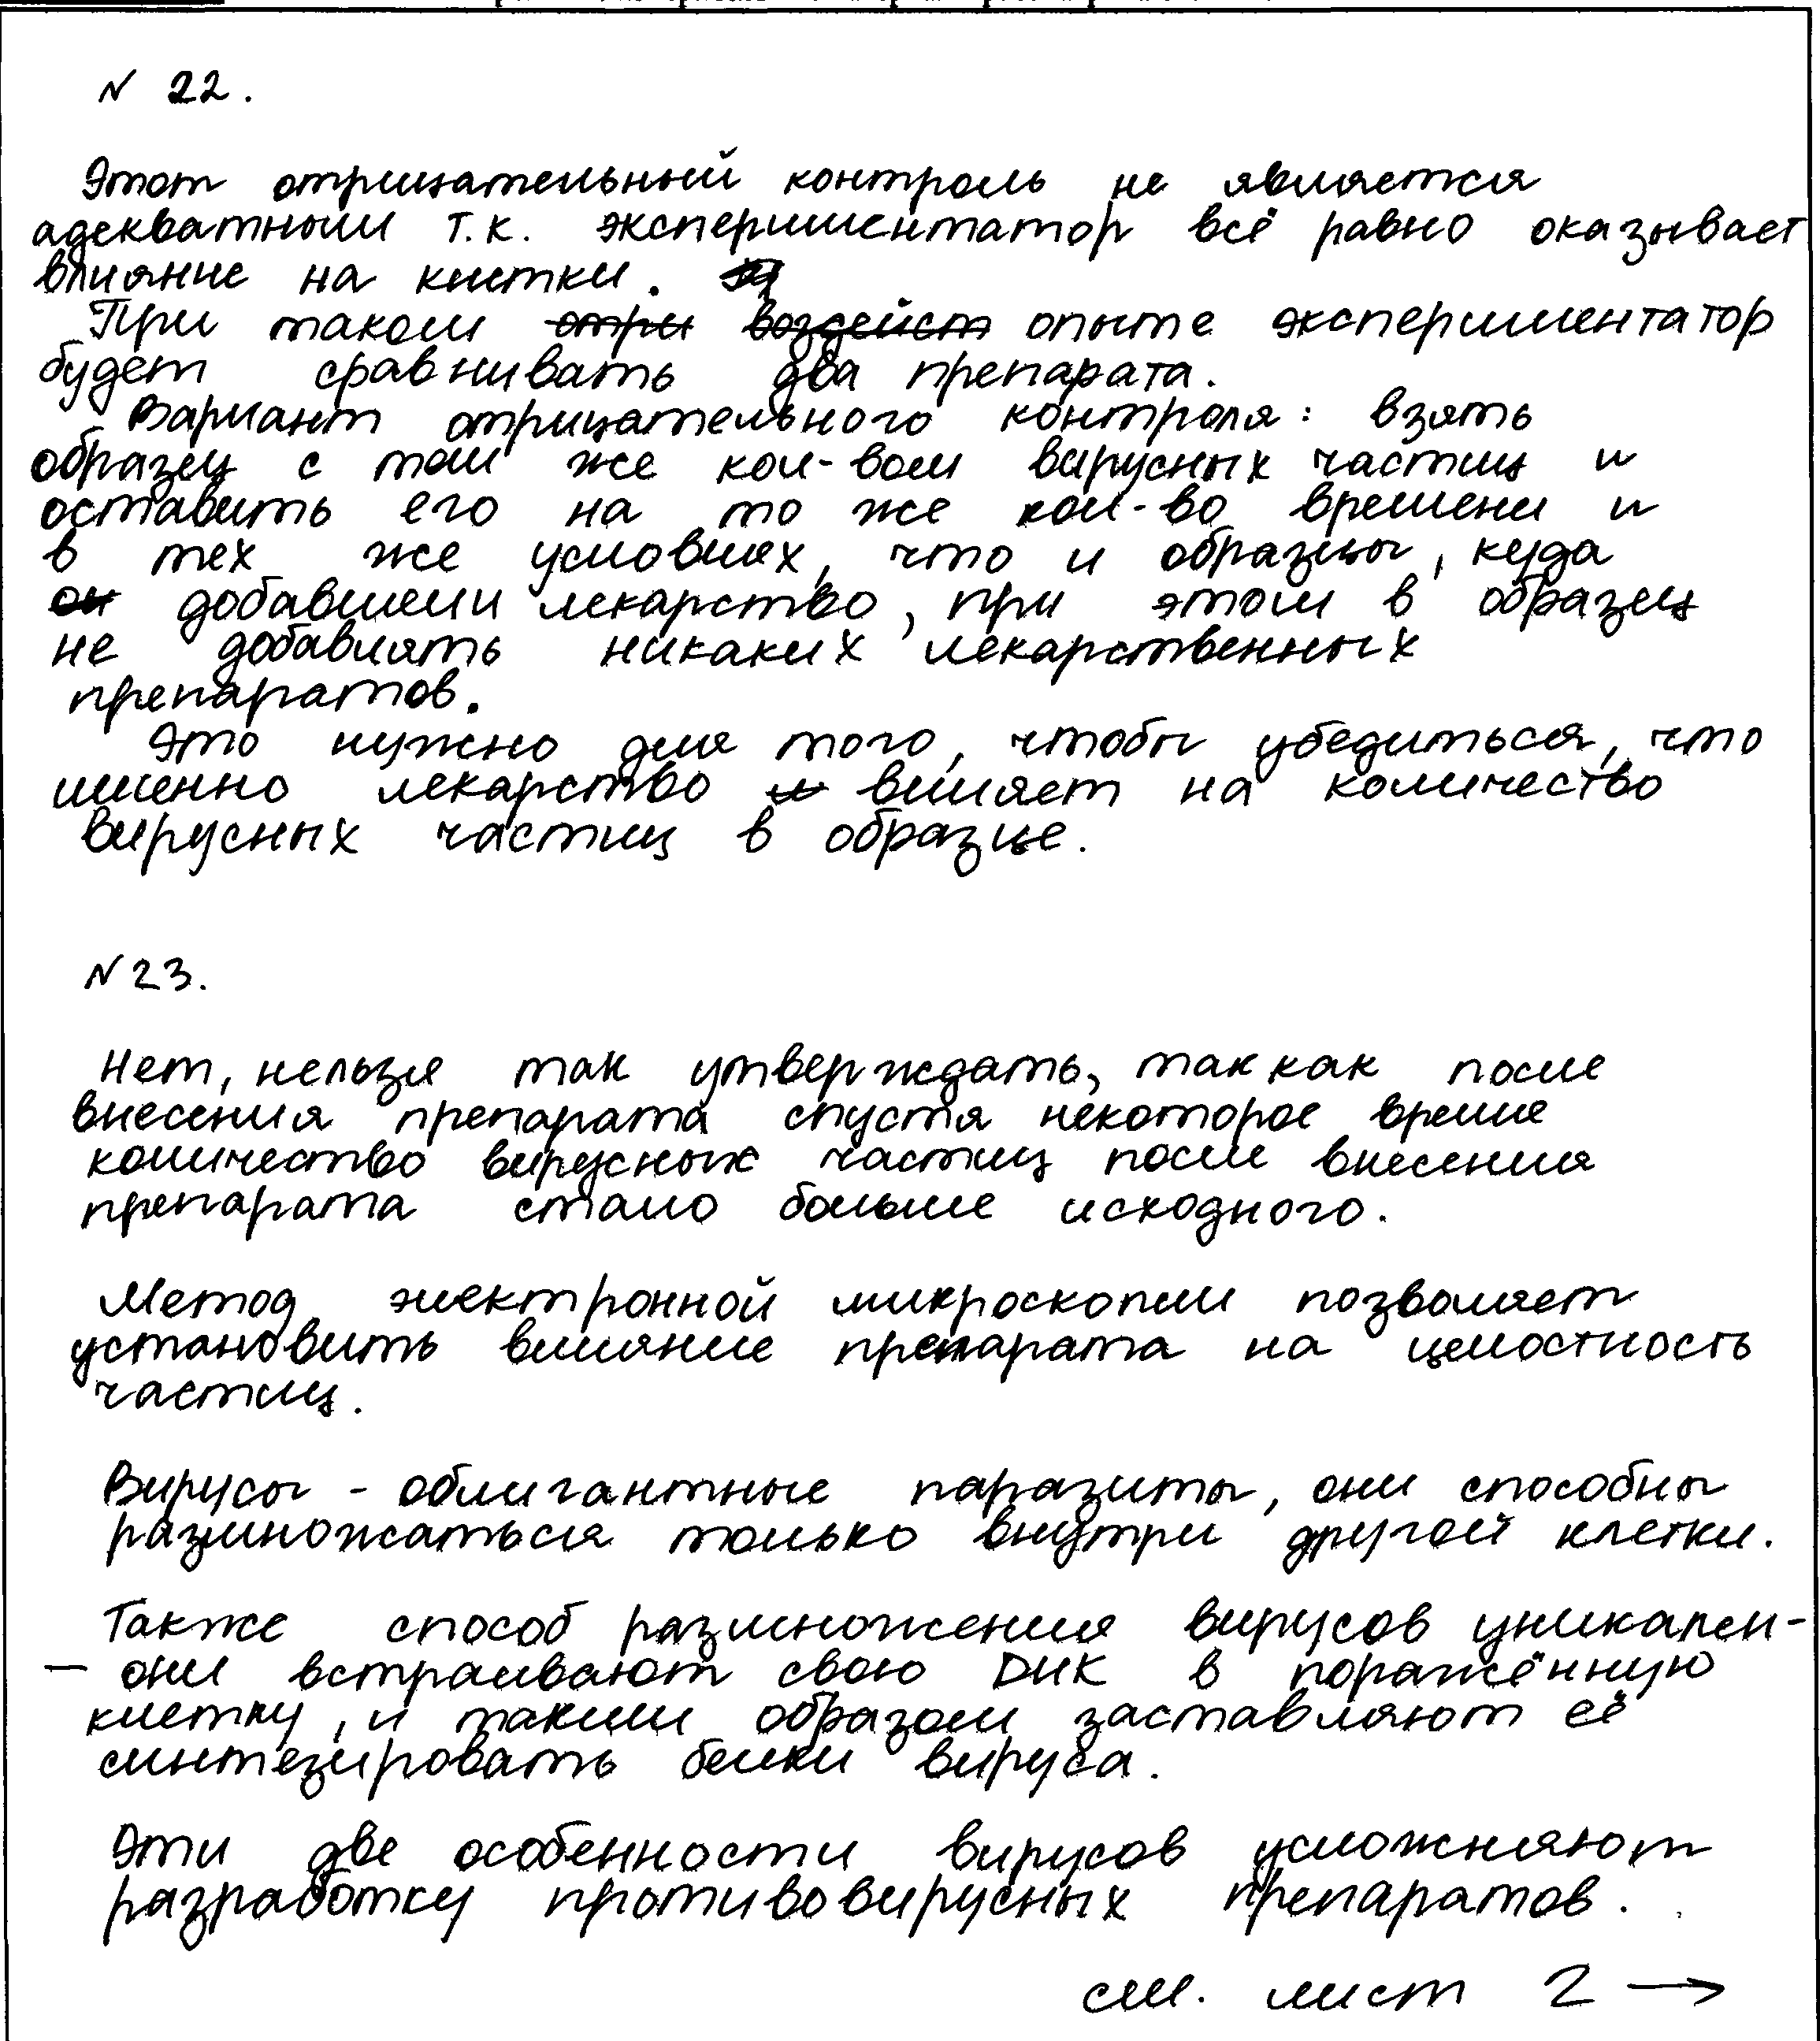 № 22.
Этот отрицательный контроль не является
адекватным т.к. экспериментатор всё равно оказывает
влияние на клетки.
При таком отри воздейст опыте экспериментатор
будет сравнивать два препарата.
Вариант отрицательного контроля: взять
образец с тем же кол-вом вирусных частиц и
оставить его на то же кол-во времени и
в тех же условиях, что и образцы, куда
он добавляли лекарство, при этом в образец
не добавлять никаких лекарственных
препаратов.
Это нужно для того, чтобы убедиться, что
именно лекарство влияет на количество
вирусных частиц в образце.
№ 23.
Нет, нельзя так утверждать, так как после
внесения препарата спустя некоторое время
количество вирусных частиц после внесения
препарата стало больше исходного.
Метод электронной микроскопии позволяет
установить влияние препарата на целостность
частиц.
Вирусы - облигантные паразиты, они способны
размножаться только внутри другой клетки.
Также способ размножения вирусов уникален-
— они встраивают свою ДНК в поражённую
клетку, и таким образом заставляют её
синтезировать белки вируса.
Эти две особенности вирусов усложняют
разработку противовирусных препаратов.
см. лист 2 →